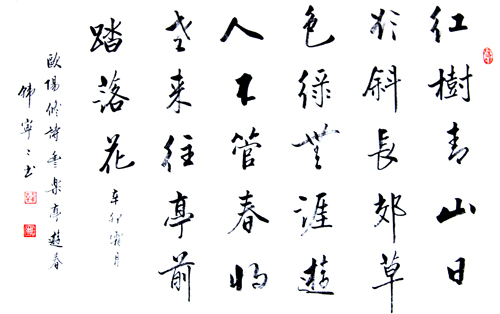 红樹青山日
欲斜長郊草
色綠無涯遊
人不管春將
老来往亭前
踏落花
辛卯霜月
歐陽修詩豐樂亭遊春